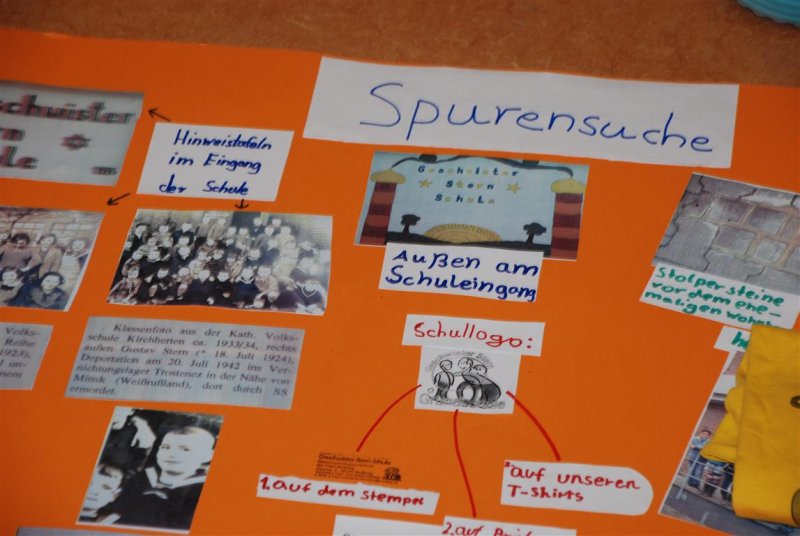 Spurensuche
chwister
rn
le
Hinweistafeln
im Eingang
der Schule
Geschwister
Stern
Schule
Außen am
Schuleingang
Stolpersteine
vor dem ehe-
maligen
Volks-
Reihe
1923),
nem
Klassenfoto aus der Kath. Volks-
schule Kirchherten ca. 1933/34, rechts
außen Gustav Stern (* 18. Juli 1924),
Deportation am 20. Juli 1942 ins Ver-
nichtungslager Trostenez in der Nähe von
Minsk (Weißrußland), dort durch SS
ermordet.
Schullogo:
Geschwister Stern
Grundschule
Geschwister-Stern-Schule
1. auf dem Stempel
auf unseren
T-Shirts
2. auf